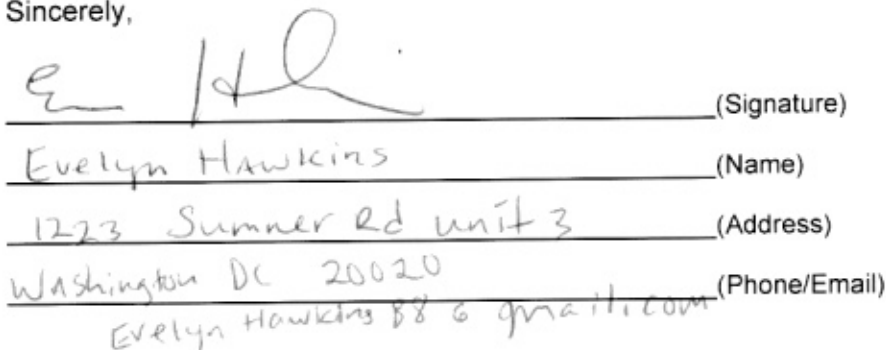 Sincerely,
(Signature)
Evelyn Hawkins (Name)
1223 Sumner Rd unit 3 (Address)
Washington DC 20020 (Phone/Email)
Evelyn Hawkins 88 @ gmail.com